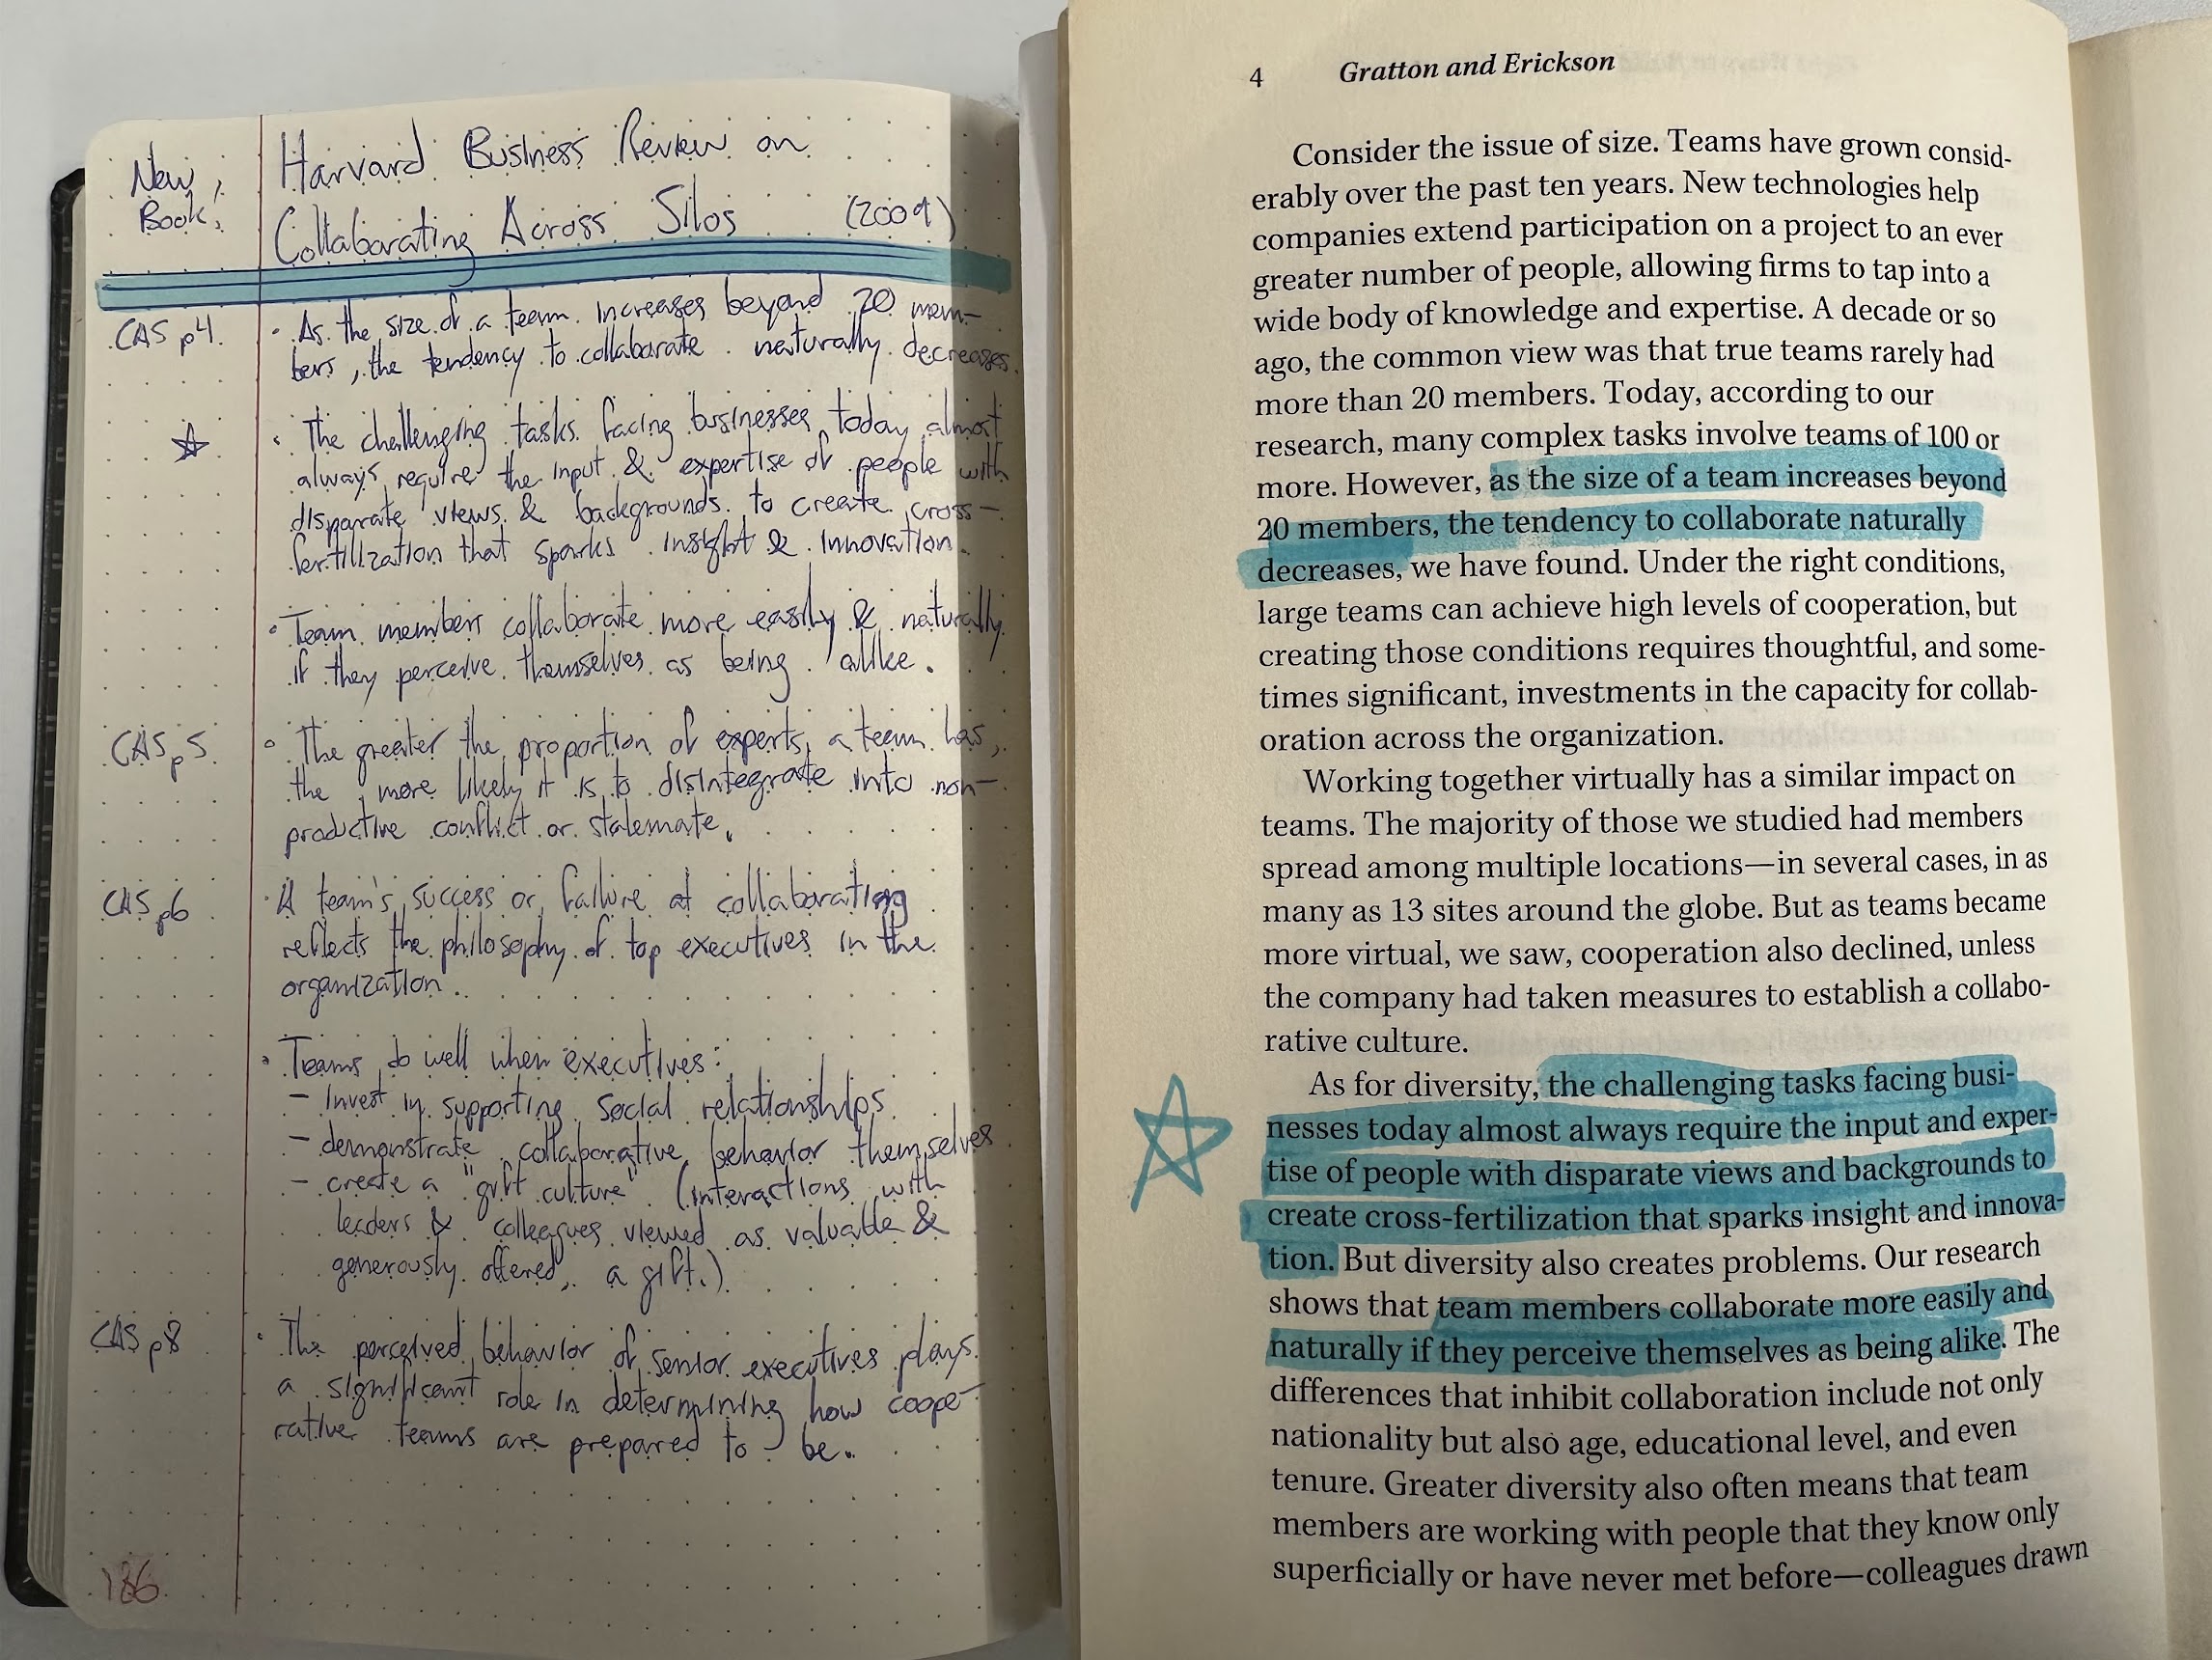 New
Book!
Harvard Business Review on
Collaborating Across Silos (2009)
CAS p4
· As the size of a team increases beyond 20 mem-
bers, the tendency to collaborate naturally decreases.
· The challenging tasks facing businesses today almost
always require the input & expertise of people with
disparate views & backgrounds to create cross-
fertilization that sparks insight & innovation.
· Team members collaborate more easily & naturally
if they perceive themselves as being alike.
CAS p5
· The greater the proportion of experts a team has,
the more likely it is to disintegrate into non-
productive conflict or stalemate.
CAS p6
· A team's success or failure at collaborating
reflects the philosophy of top executives in the
organization.
· Teams do well when executives:
- invest in supporting social relationships
- demonstrate collaborative behavior themselves
- create a "gift culture" (interactions with
leaders & colleagues viewed as valuable &
generously offered, a gift.)
CAS p8
· The perceived behavior of senior executives plays
a significant role in determining how coope-
rative teams are prepared to be.
186
4 Gratton and Erickson
Consider the issue of size. Teams have grown consid-
erably over the past ten years. New technologies help
companies extend participation on a project to an ever
greater number of people, allowing firms to tap into a
wide body of knowledge and expertise. A decade or so
ago, the common view was that true teams rarely had
more than 20 members. Today, according to our
research, many complex tasks involve teams of 100 or
more. However, as the size of a team increases beyond
20 members, the tendency to collaborate naturally
decreases, we have found. Under the right conditions,
large teams can achieve high levels of cooperation, but
creating those conditions requires thoughtful, and some-
times significant, investments in the capacity for collab-
oration across the organization.
Working together virtually has a similar impact on
teams. The majority of those we studied had members
spread among multiple locations—in several cases, in as
many as 13 sites around the globe. But as teams became
more virtual, we saw, cooperation also declined, unless
the company had taken measures to establish a collabo-
rative culture.
As for diversity, the challenging tasks facing busi-
nesses today almost always require the input and exper-
tise of people with disparate views and backgrounds to
create cross-fertilization that sparks insight and innova-
tion. But diversity also creates problems. Our research
shows that team members collaborate more easily and
naturally if they perceive themselves as being alike. The
differences that inhibit collaboration include not only
nationality but also age, educational level, and even
tenure. Greater diversity also often means that team
members are working with people that they know only
superficially or have never met before—colleagues drawn